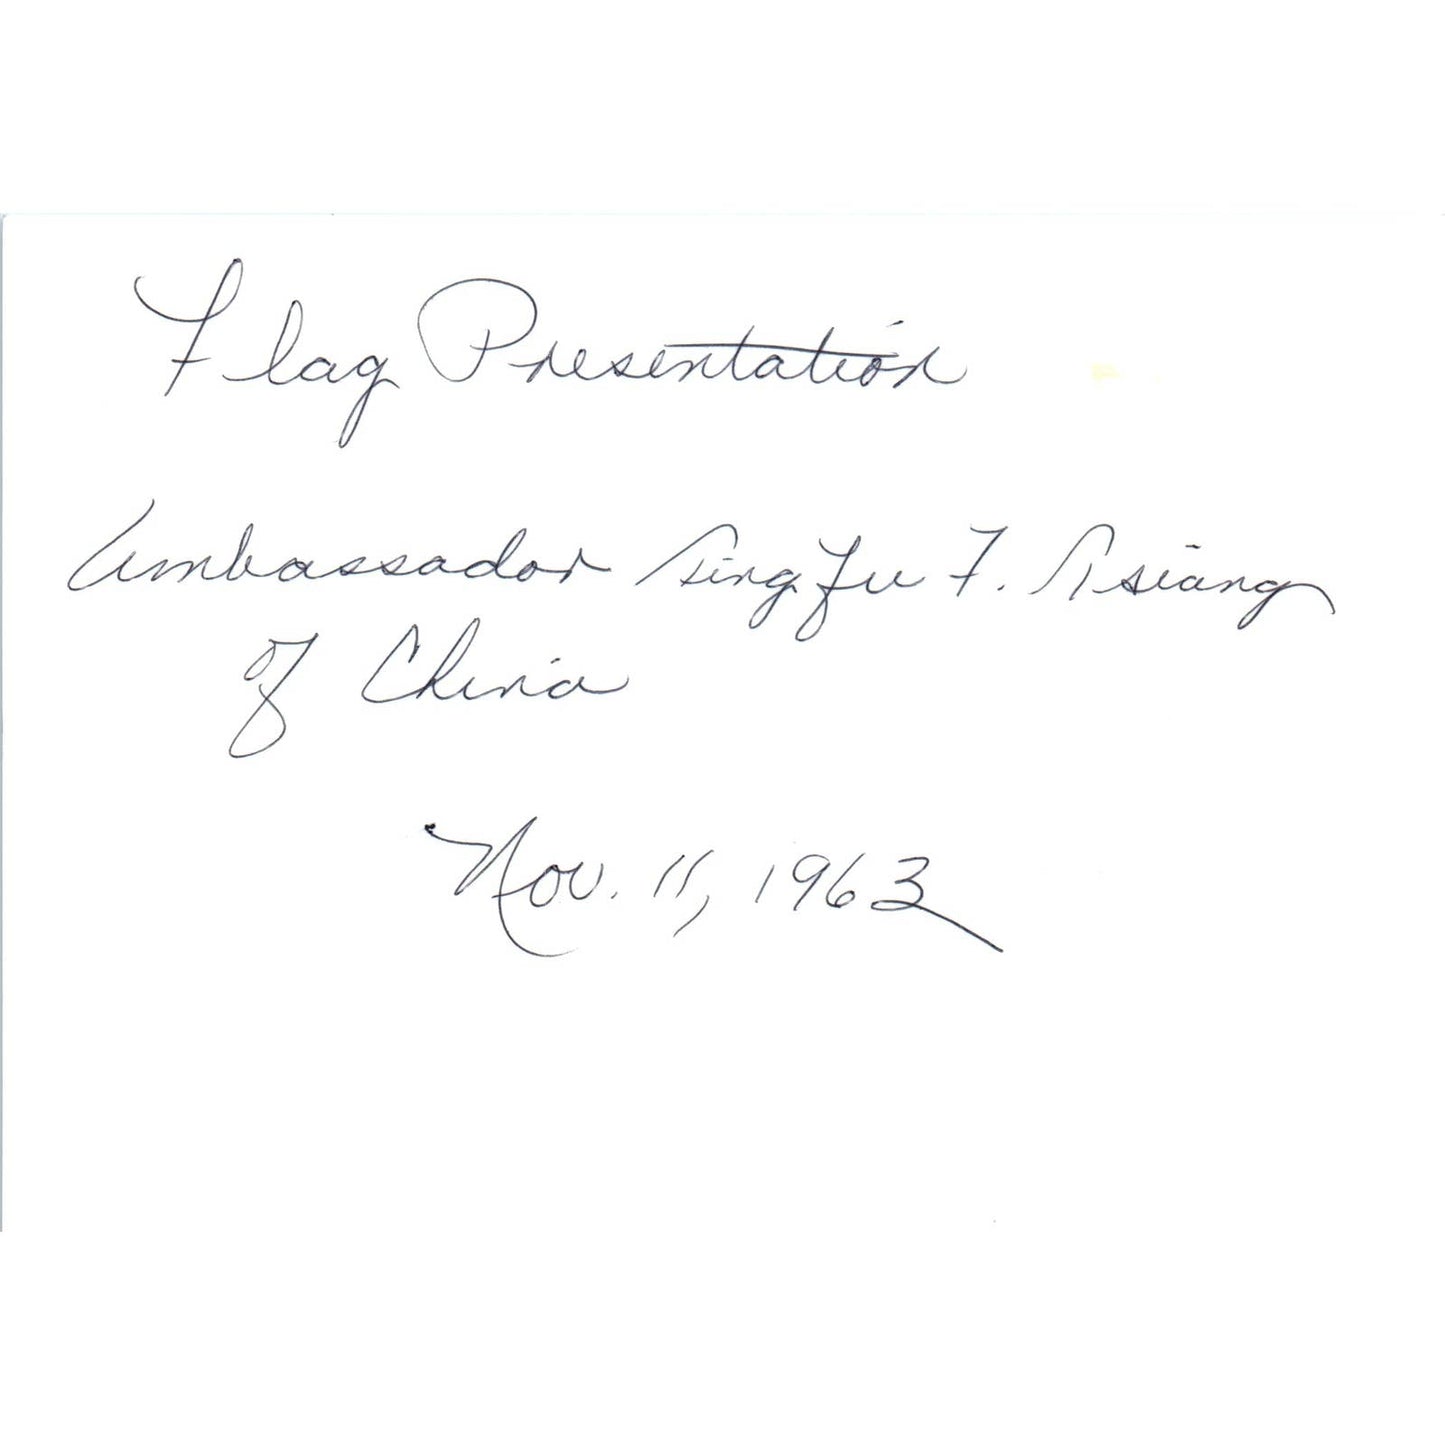 Flag Presentation
Ambassador Tingfu F. Tsiang
of China
Nov. 11, 1963